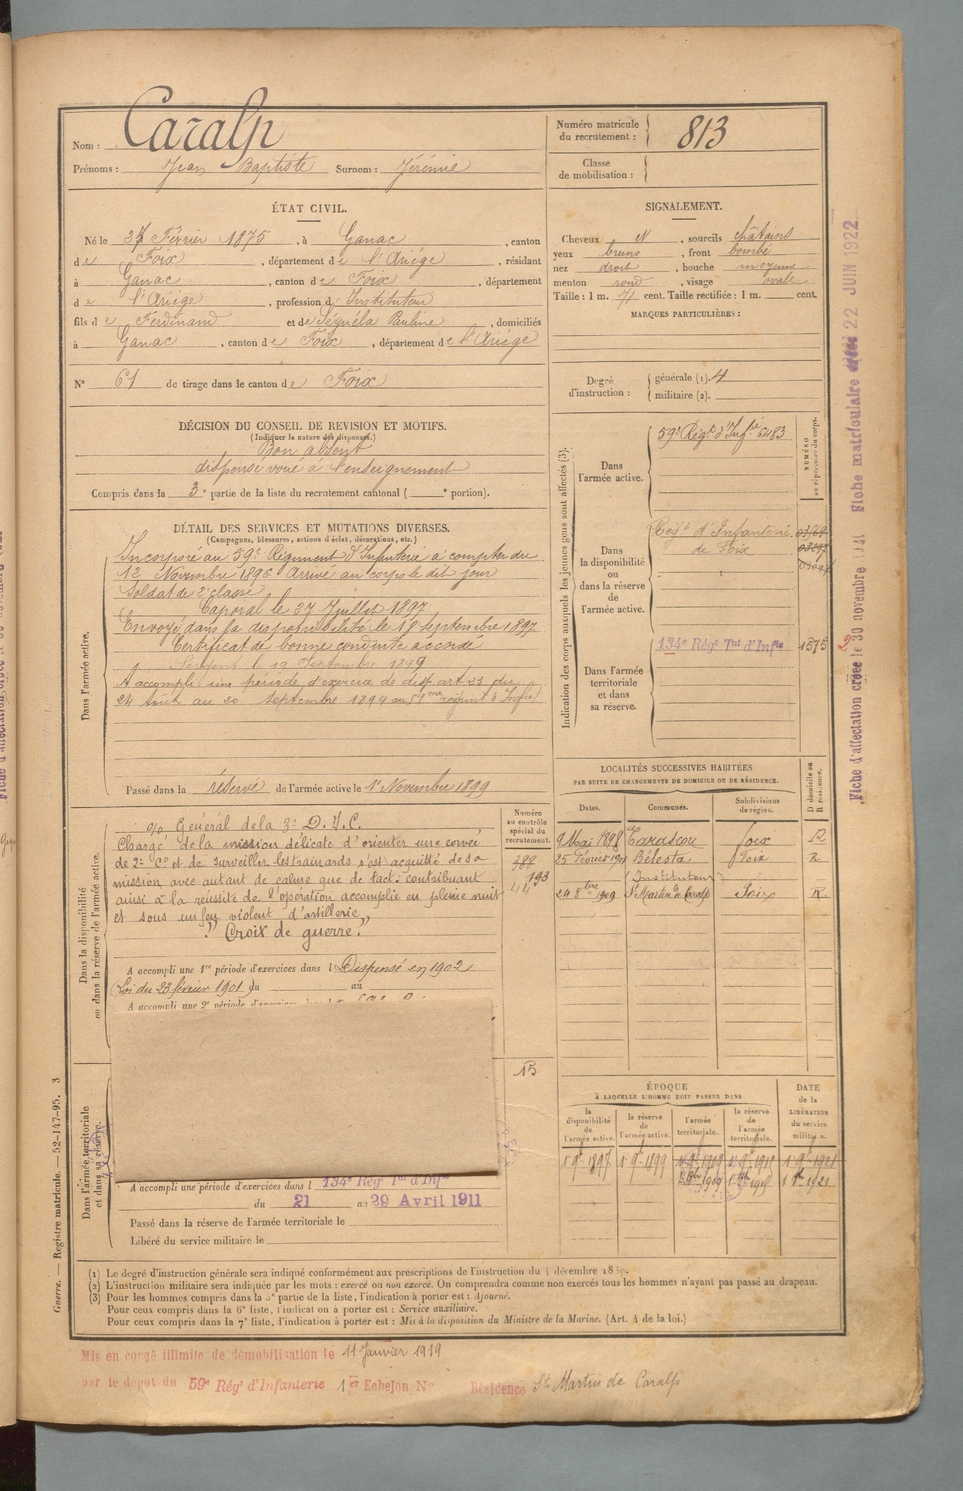 Nom : Caralp
Prénoms : Jean Baptiste Surnom : Jérémie
Numéro matricule du recrutement : 813
Classe de mobilisation :
ÉTAT CIVIL.
Né le 27 Février 1875, à Ganac, canton
de Foix, département de l'Ariège, résidant
à Ganac, canton de Foix, département
de l'Ariège, profession d'Instituteur
fils de Ferdinand et de Séguéla Pauline, domiciliés
à Ganac, canton de Foix, département de l'Ariège
N° 61 de tirage dans le canton de Foix
SIGNALEMENT.
Cheveux et, sourcils châtains
yeux bruns, front bombé
nez droit, bouche moyenne
menton rond, visage ovale
Taille : 1 m. 71 cent. Taille rectifiée : 1 m. cent.
MARQUES PARTICULIÈRES :
Degré d'instruction : générale (1) 4
militaire (2).
DÉCISION DU CONSEIL DE REVISION ET MOTIFS.
(Indiquer la nature des dispenses.)
Bon absent
dispensé voué à l'enseignement
Compris dans la 3e partie de la liste du recrutement cantonal ( e portion).
DÉTAIL DES SERVICES ET MUTATIONS DIVERSES.
(Campagnes, blessures, actions d'éclat, décorations, etc.)
Dans l'armée active.
Incorporé au 59e Régiment d'Infanterie à compter du
12 Novembre 1896 Arrivé au corps le dit jour
Soldat de 2e classe
Caporal le 27 Juillet 1897
Envoyé dans la disponibilité le 18 Septembre 1897
Certificat de bonne conduite accordé
Sergent le 19 Septembre 1899
A accompli une période d'exercice de disp. art 23 du
24 Août au 20 Septembre 1899 au régiment d'Infie
Passé dans la réserve de l'armée active le 1er Novembre 1899
Indication des corps auxquels les jeunes gens sont affectés (3).
NUMÉRO au répertoire du corps.
Dans l'armée active.
59e Régt d'Infie 6483
Dans la disponibilité ou dans la réserve de l'armée active.
Régt d'Infanterie
de Foix
Dans l'armée territoriale et dans sa réserve.
134e Régt Tal d'Infie 1575
LOCALITÉS SUCCESSIVES HABITÉES
PAR SUITE DE CHANGEMENTS DE DOMICILE OU DE RÉSIDENCE.
Dates. Communes. Subdivisions de région. D domicile ou R résidence.
9 Mai 1898 Tarascon Foix R
25 Février 1901 Bélesta Foix R
(Instituteur)
24 8bre 1909 St Martin de Caralp Foix R
Numéro au contrôle spécial du recrutement.
488
193
15
Dans la disponibilité ou dans la réserve de l'armée active.
Général de la 3e D.I.C.
Chargé de la mission délicate d'orienter une corvée
de 2e Cie et de surveiller les trainards s'est acquitté de sa
mission avec autant de calme que de tact. contribuant
ainsi à la réussite de l'opération accomplie en pleine nuit
et sous un feu violent d'artillerie
"Croix de guerre."
A accompli une 1re période d'exercices dans l Dispensé en 1902
Loi du 23 février 1901 du au
A accompli une 2e période d'exercices
Dans l'armée territoriale et dans sa réserve.
A accompli une période d'exercices dans l 134e Régt Tal d'Infie
du 21 au 29 Avril 1911
Passé dans la réserve de l'armée territoriale le
Libéré du service militaire le
ÉPOQUE
À LAQUELLE L'HOMME DOIT PASSER DANS
DATE de la LIBÉRATION du service militaire.
la disponibilité de l'armée active. la réserve de l'armée active. l'armée territoriale. la réserve de l'armée territoriale.
1er 9bre 1897 1er 9bre 1899 1er 9bre 1909 1er 9bre 1915 1er 9bre 1921
(1) Le degré d'instruction générale sera indiqué conformément aux prescriptions de l'Instruction du 4 décembre 1889.
(2) L'instruction militaire sera indiquée par les mots : exercé ou non exercé. On comprendra comme non exercés tous les hommes n'ayant pas passé au drapeau.
(3) Pour les hommes compris dans la 5e partie de la liste, l'indication à porter est : Ajourné.
Pour ceux compris dans la 6e liste, l'indication à porter est : Service auxiliaire.
Pour ceux compris dans la 7e liste, l'indication à porter est : Mis à la disposition du Ministre de la Marine. (Art. 4 de la loi.)
Mis en congé illimité de démobilisation le 11 Janvier 1919
par le dépôt du 59e Régt d'Infanterie 1er Echelon No Résidence St Martin de Caralp
Guerre. — Registre matricule. — 52-147-95. 3
Fiche d'affectation créée le 30 novembre
Fiche matriculaire créée 22 JUIN 1922